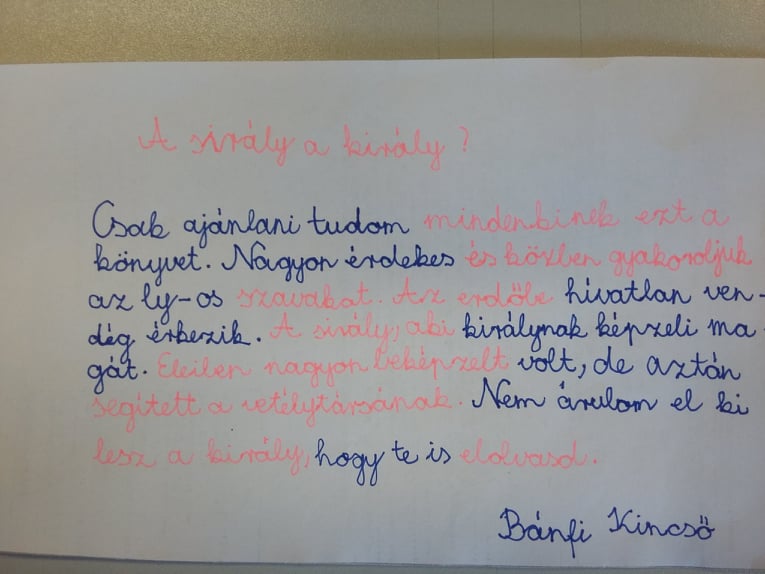 A sirály a király?
Csak ajánlani tudom mindenkinek ezt a
könyvet. Nagyon érdekes és közben gyakoroljuk
az ly-os szavakat. Az erdőbe hivatlan ven-
dég érkezik. A sirály, aki királynak képzeli ma-
gát. Eleilen nagyon beképzelt volt, de aztán
segített a vetélytársának. Nem árulom el ki
lesz a király, hogy te is elolvasd.
Bánfi Kincső